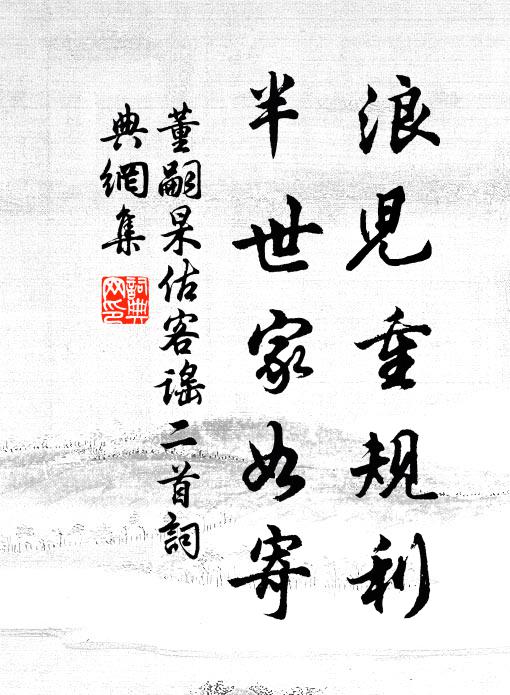 浪児重規利
半世家如寄
董嗣杲估客謠二首詞
典網集
詞典
网印